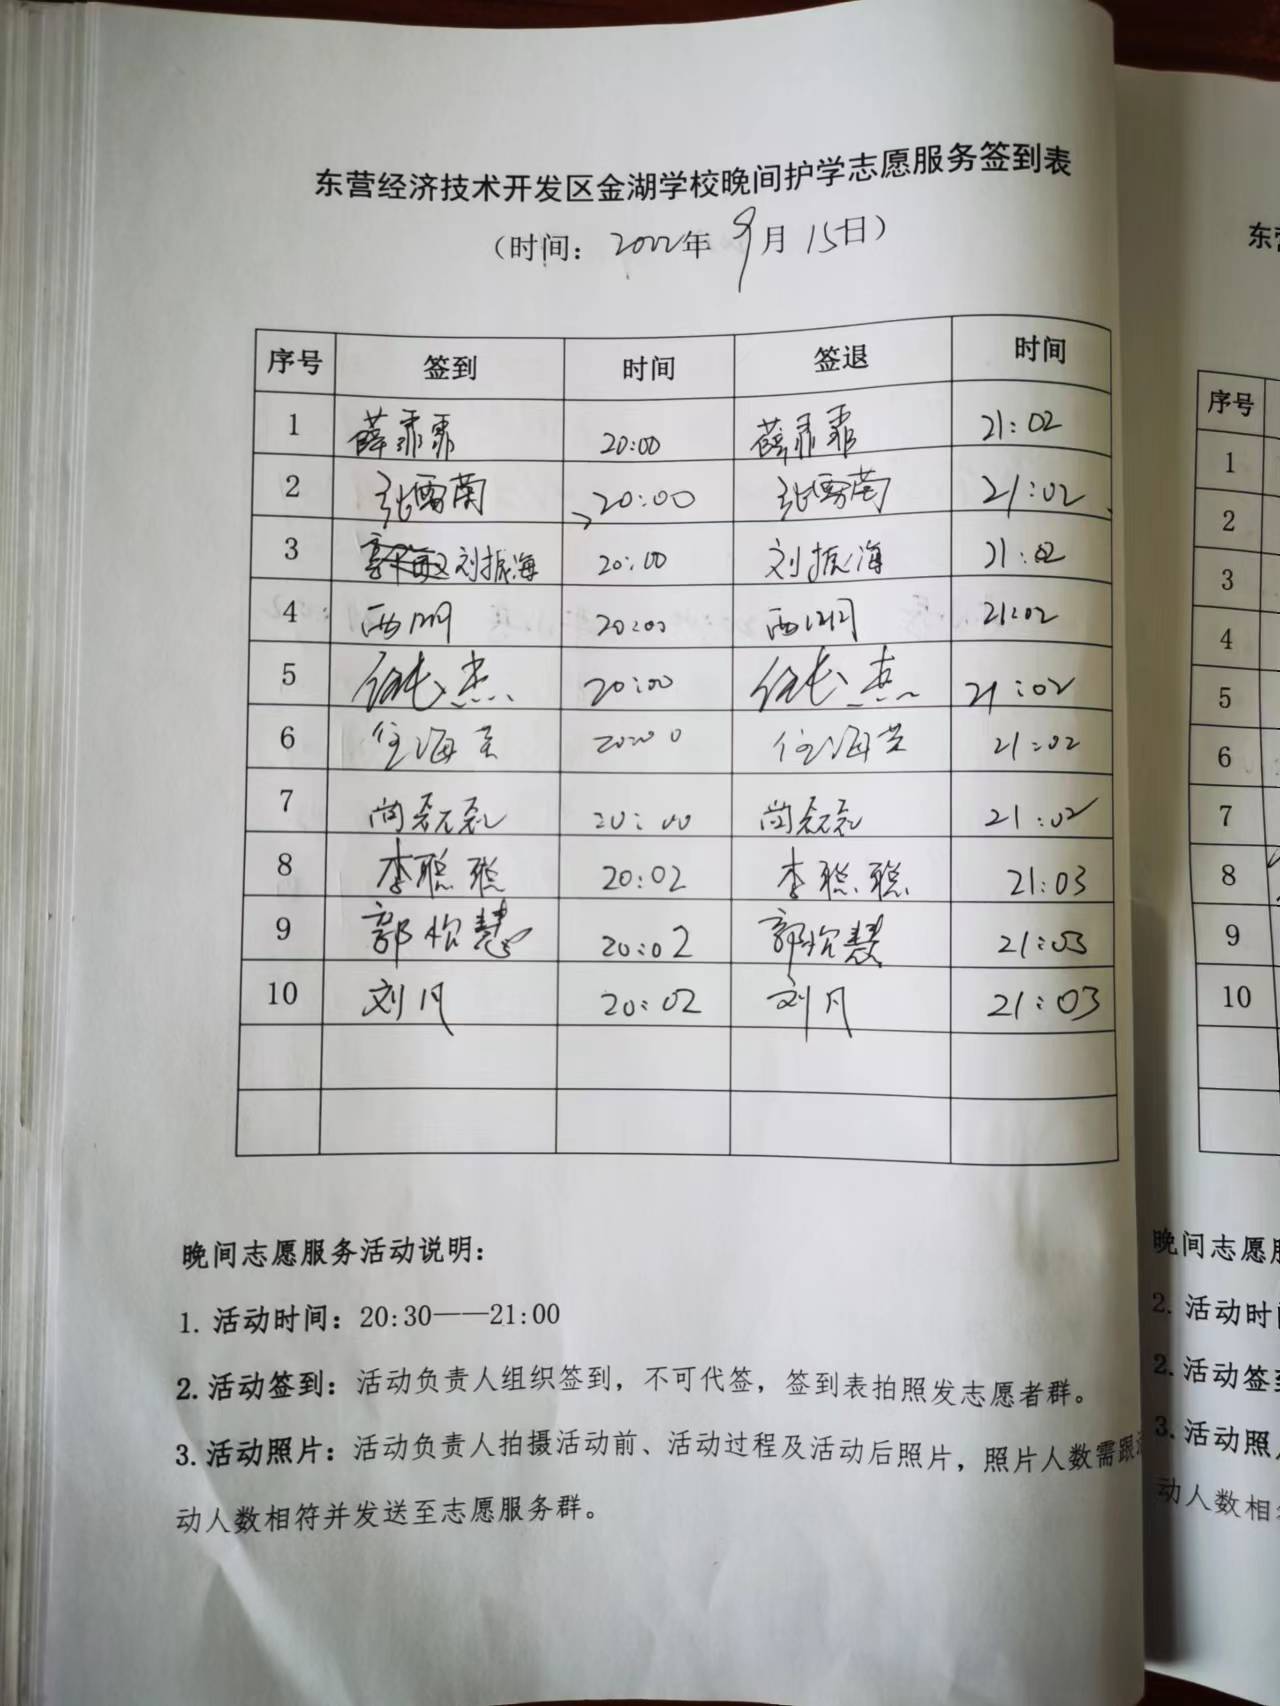 东营经济技术开发区金湖学校晚间护学志愿服务签到表
（时间：2022年 9月 15日）
序号 签到 时间 签退 时间
1 薛霏霏 20:00 薛霏霏 21:02
2 张雪菊 20:00 张雪菊 21:02
3 刘振海 20:00 刘振海 21:02
4 20:00 21:02
5 20:00 21:02
6 任海芸 20:00 任海芸 21:02
7 尚磊磊 20:00 尚磊磊 21:02
8 李聪聪 20:02 李聪聪 21:03
9 郭怡慧 20:02 郭怡慧 21:03
10 刘凡 20:02 刘凡 21:03
晚间志愿服务活动说明：
1. 活动时间：20:30——21:00
2. 活动签到：活动负责人组织签到，不可代签，签到表拍照发志愿者群。
3. 活动照片：活动负责人拍摄活动前、活动过程及活动后照片，照片人数需跟
动人数相符并发送至志愿服务群。
东
序号
1
2
3
4
5
6
7
8
9
10
晚间志愿
2. 活动时
2. 活动签
3. 活动照
动人数相